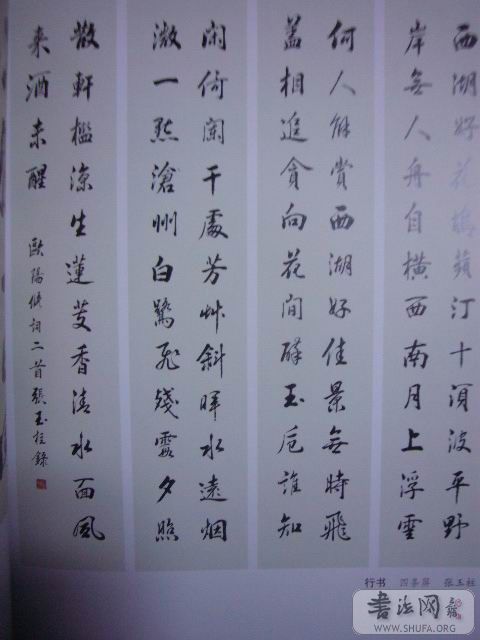 西湖好花塢蘋汀十頃波平野
岸無人舟自橫西南月上浮雲
何人解賞西湖好佳景無時飛
蓋相追貪向花間醉玉卮誰知
閑倚闌干處芳艸斜暉水遠烟
微一點滄州白鷺飛殘霞夕照
散軒檻涼生蓮芰香清水面風
来酒未醒
歐陽修詞二首張玉柱錄
行书 四条屏 张玉柱
書法网
WWW.SHUFA.ORG